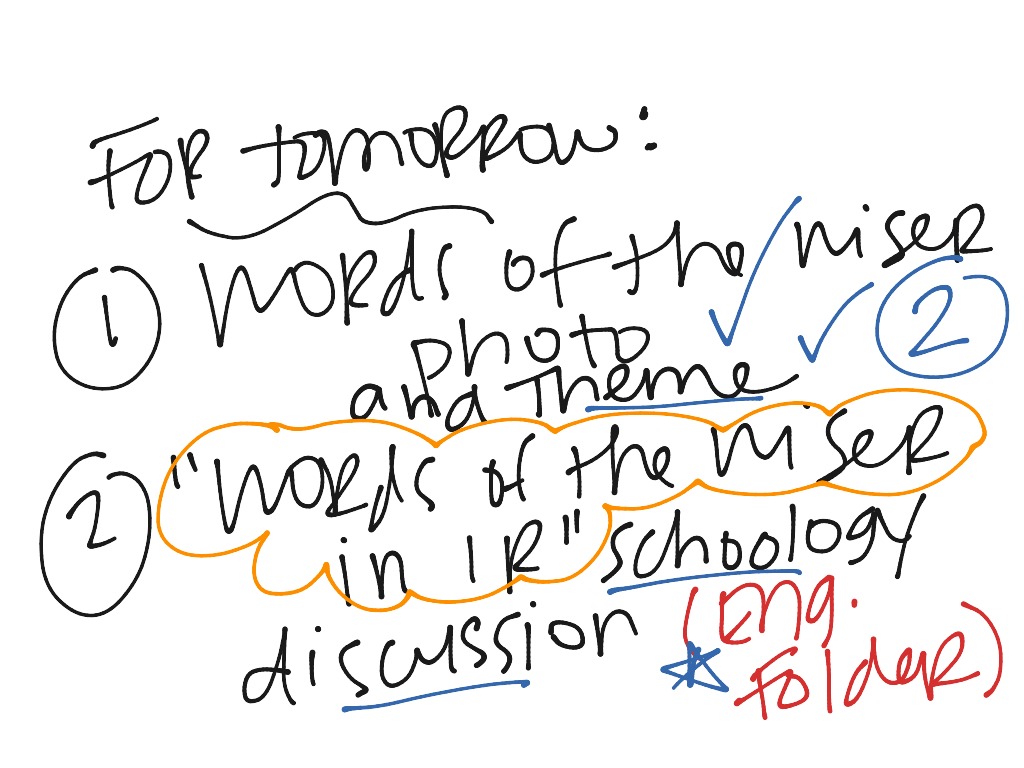 FOR tomorrow:
1 Words of the wiser
photo 2
and Theme
2 "Words of the wiser
in IR" schoology
discussion (Eng.
Folder)